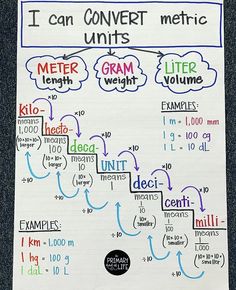 I can CONVERT metric
units
METER
length
GRAM
weight
LITER
volume
kilo-
means
1,000
(10×10×10
larger)
×10
hecto-
means
100
(10×10
larger)
×10
deca-
means
10
(10×
larger)
×10
UNIT
×10
deci-
means
1/10
(10×
smaller)
×10
centi-
means
1/100
(10×10
smaller)
×10
milli-
means
1/1,000
(10×10×10
smaller)
÷10
÷10
÷10
÷10
÷10
÷10
EXAMPLES:
1 m = 1,000 mm
1 g = 100 cg
1 L = 10 dL
EXAMPLES:
1 km = 1,000 m
1 hg = 100 g
1 daL = 10 L
PRIMARY
LIFE